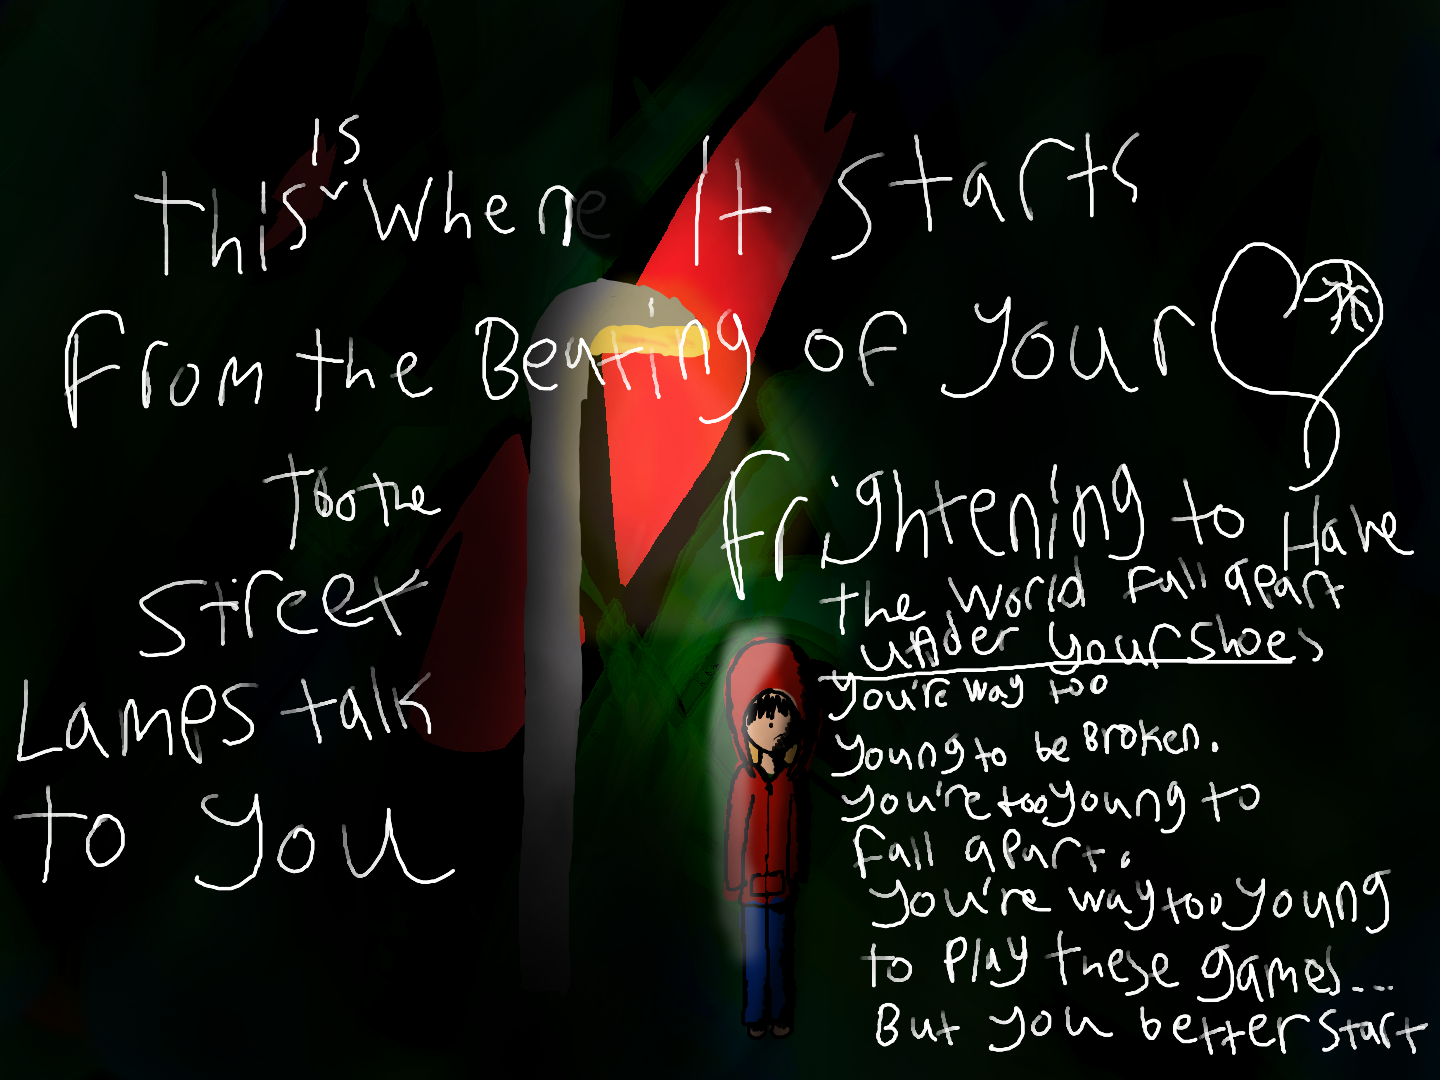 This is where It starts
From the Beating of your
Too the
street
Lamps talk
to you
Frightening to Have
the World Fall apart
under your shoes
you're way too
young to be Broken.
you're too young to
fall apart.
you're way too young
to play these games...
But you better start